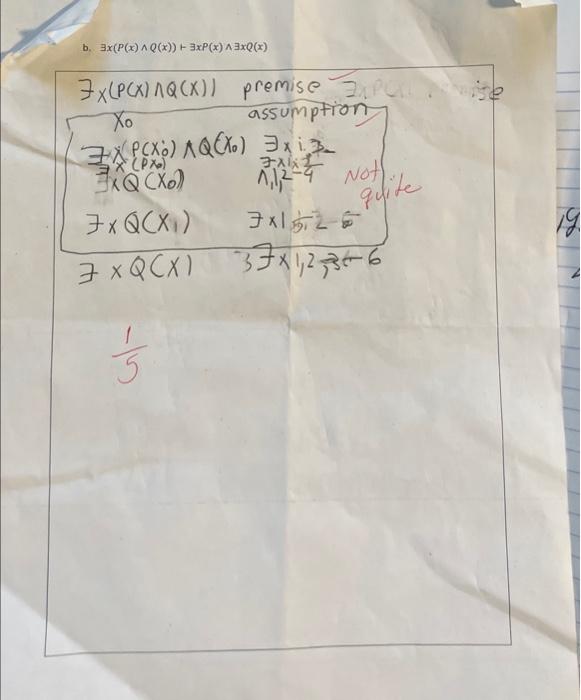 b. ∃x(P(x) ∧ Q(x)) ⊢ ∃xP(x) ∧ ∃xQ(x)
∃x(P(x) ∧ Q(x)) premise
x₀ assumption
P(x₀) ∧ Q(x₀) ∃x
∃x Q(x₀) ∧,1,2-4
Not quite
∃x Q(x₁) ∃x1
∃x Q(x) ∃x1,2,3-6
1/5